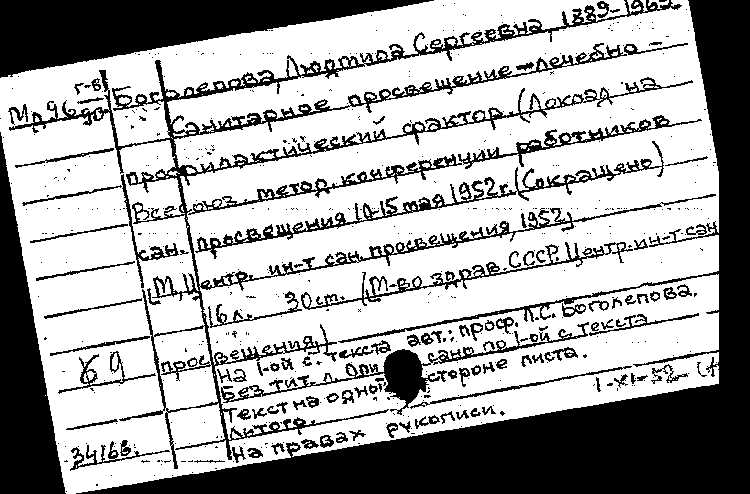 Мл 96 г-в/90 Боголепова, Людмила Сергеевна, 1889-1962.
Санитарное просвещение - лечебно -
профилактический фактор. (Доклад на
Всесоюз. метод. конференции работников
сан. просвещения 10-15 мая 1952 г. (Сокращено)
[М, Центр. ин-т сан. просвещения, 1952]
16 л. 30 ст. (М-во здрав. СССР. Центр. ин-т сан.
просвещения,)
На 1-ой с. текста авт.: проф. Л.С. Боголепова.
Без тит. л. Описано по 1-ой с. текста
Текст на одной стороне листа.
Литогр.
На правах рукописи.
69
3416в.
1-XI-52